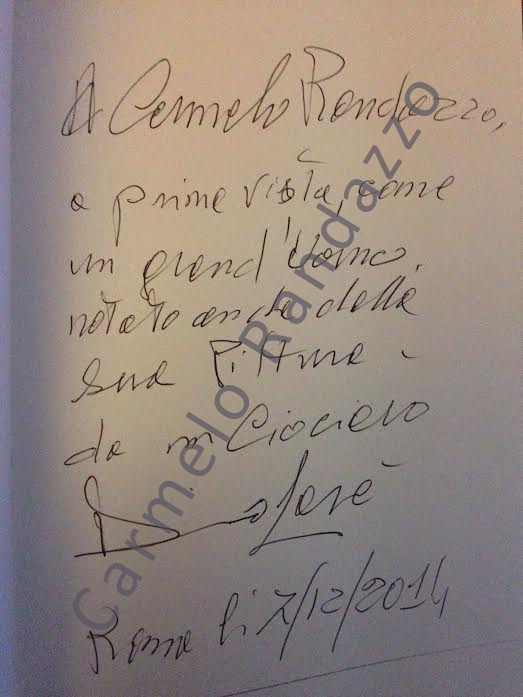 A Carmelo Randazzo,
a prima vista, come
un grand'Uomo.
notato anche dalla
sua Pittura -
da un Ciociaro
Roma li 7/12/2014
Carmelo Randazzo